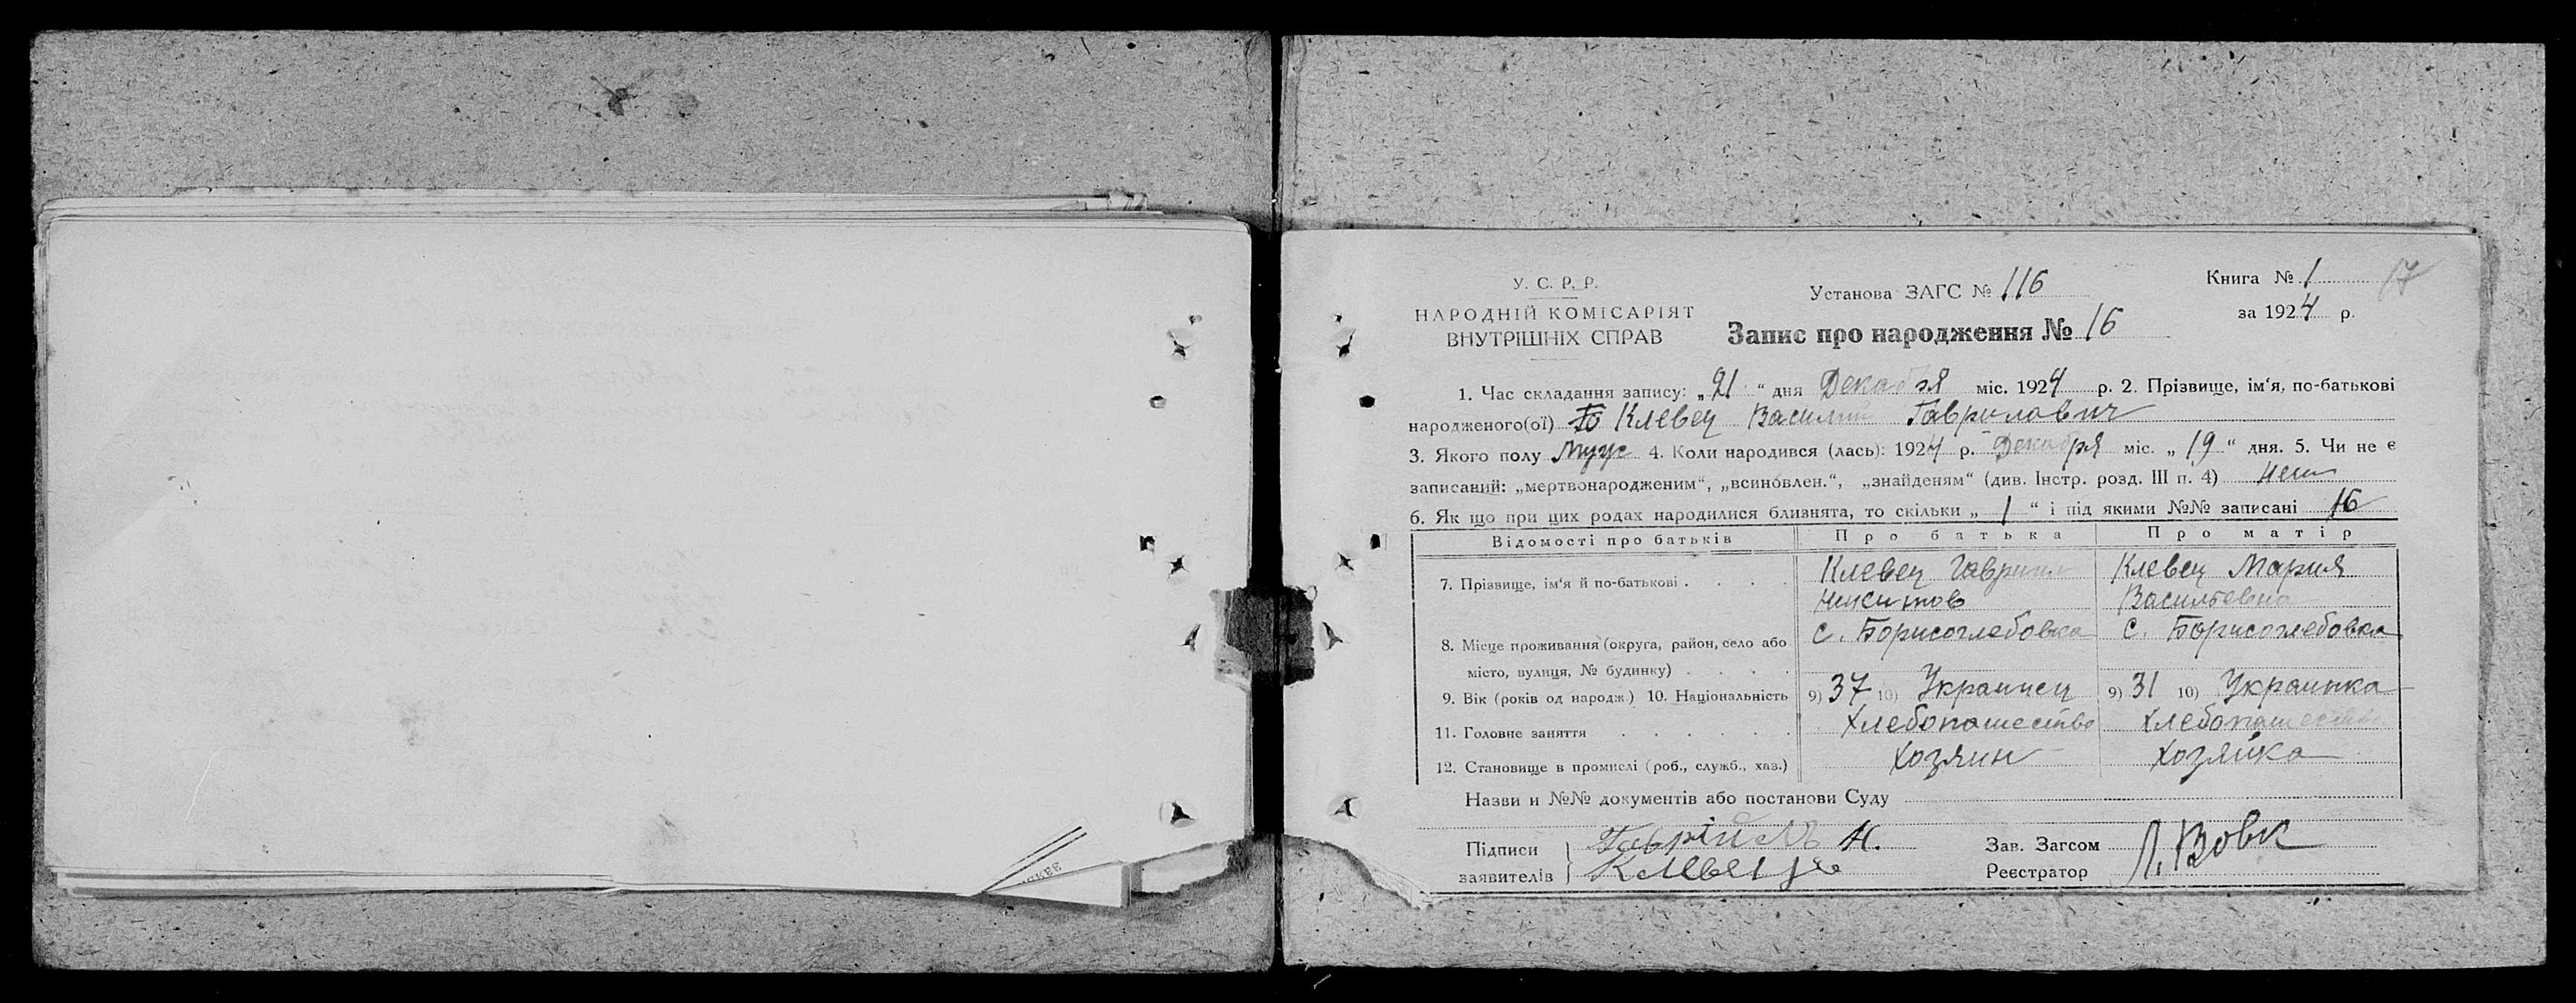 У. С. Р. Р.
НАРОДНІЙ КОМІСАРІЯТ
ВНУТРІШНІХ СПРАВ
Установа ЗАГС № 116
Запис про народження № 16
Книга № 1 17
за 1924 р.
1. Час складання запису: „21“ дня Декабря міс. 1924 р. 2. Прізвище, ім‘я, по-батькові
народженого(ої) Клевец Василий Гаврилович
3. Якого полу Муж 4. Коли народився (лась): 1924 р. Декабря міс. „19“ дня. 5. Чи не є
записаний: „мертвонародженим“, „всиновлен.“, „знайденям“ (див. Інстр. розд. III п. 4) Нет
6. Як що при цих родах народилися близнята, то скільки „1“ і під якими №№ записані 16
Відомості про батьків Про батька Про матір
7. Прізвище, ім‘я й по-батькові . . . . Клевец Гавриил Клевец Мария
Никитов Васильевна
8. Місце проживання (округа, район, село або с. Борисоглебовка с. Борисоглебовка
місто, вулиця, № будинку) . . . .
9. Вік (років од народж.) 10. Національність 9) 37 10) Украинец 9) 31 10) Украинка
11. Головне заняття . . . . . . Хлебопашество Хлебопашество
12. Становище в промислі (роб., служб., хаз.) Хозяин Хозяйка
Назви и №№ документів або постанови Суду
Підписи заявителів Гаврійлъ Н.
Клевец
Зав. Загсом Л. Вовк
Реєстратор